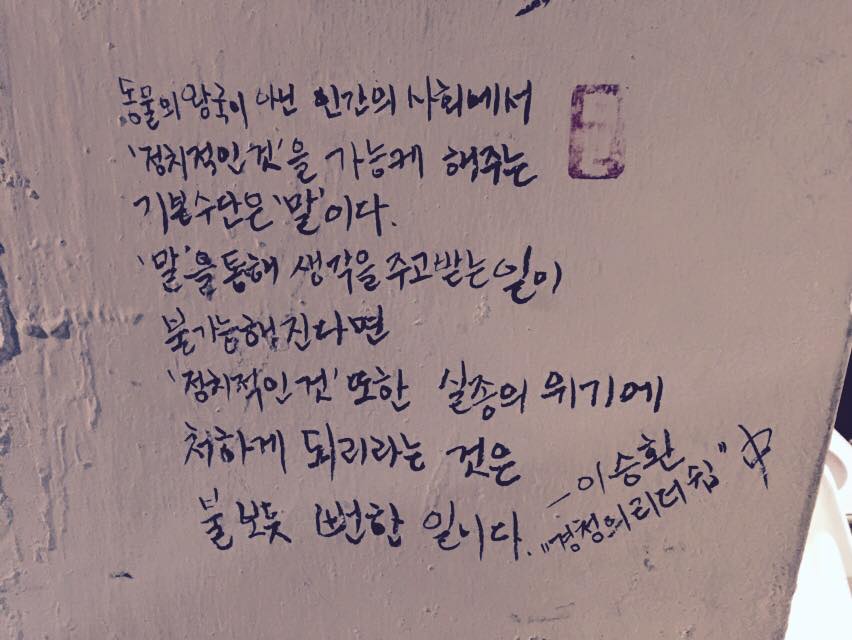 동물의 왕국이 아닌 인간의 사회에서
'정치적인 것'을 가능케 해주는
기본수단은 '말'이다.
'말'을 통해 생각을 주고받는 일이
불가능해진다면
'정치적인 것' 또한 실종의 위기에
처하게 되리라는 것은
불 보듯 뻔한 일이다.
- 이승환
"경청의 리더쉽" 中